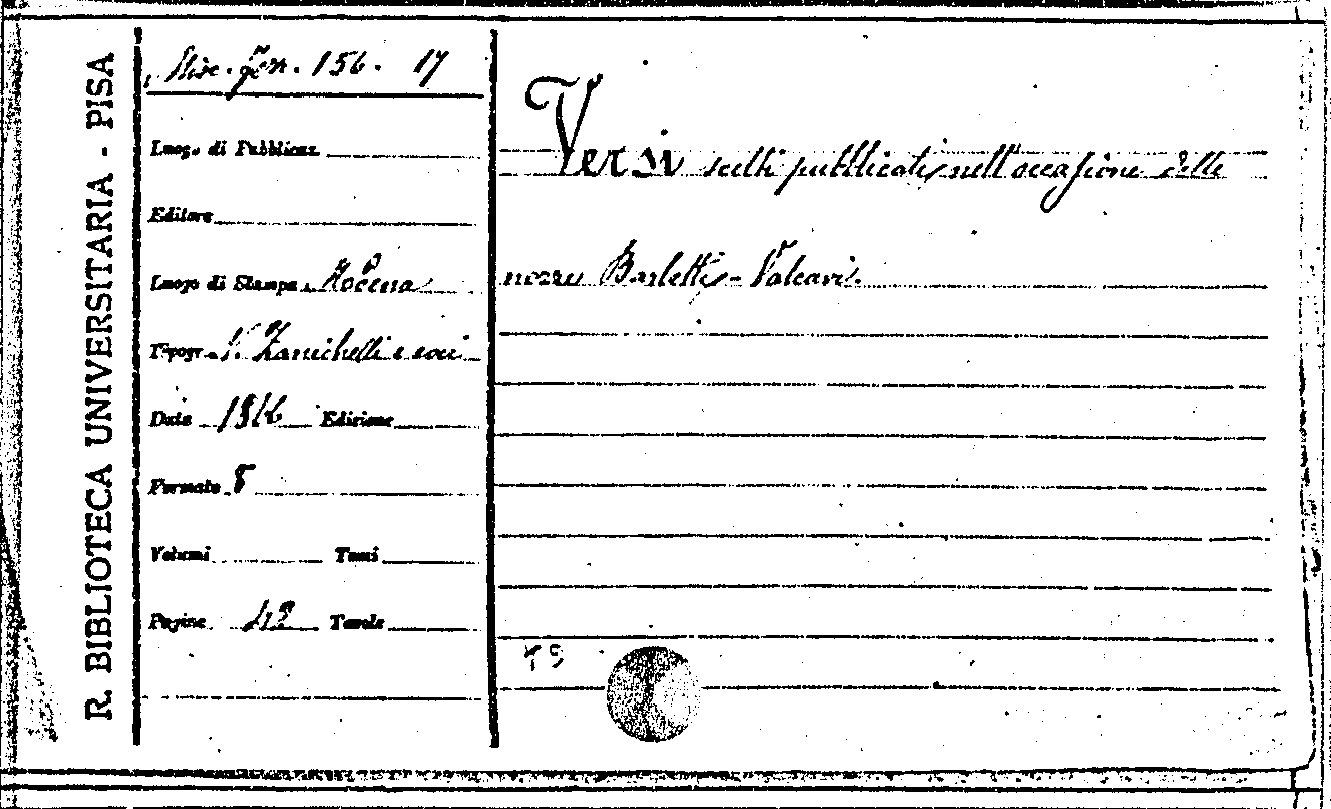 R. BIBLIOTECA UNIVERSITARIA - PISA
Misc. gen. 156. 17
Luogo di Pubblicaz.
Editore
Luogo di Stampa Modena
Tipogr. N. Zanichelli e soci
Data Edizione
Formato 8
Volumi Tomi
Pagine Tavole
Versi scelti pubblicati nell'occasione delle
nozze Barletti-Valcavi.